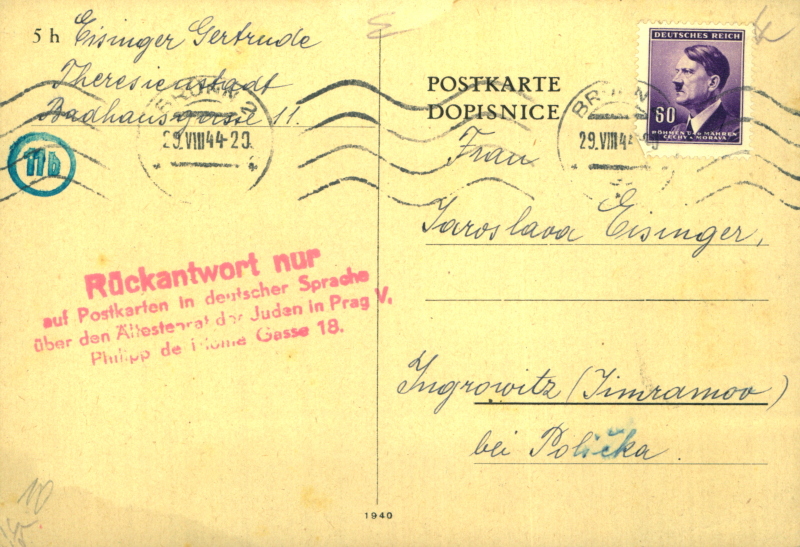 5 h Eisinger Gertrude
Theresienstadt
Badhausgasse 11.
BRÜNN 2
29.VIII 44-20
11b
Rückantwort nur
auf Postkarten in deutscher Sprache
über den Ältestenrat der Juden in Prag V.
Philipp de Gasse 18.
10
15
POSTKARTE
DOPISNICE
DEUTSCHES REICH
60
BÖHMEN UND MÄHREN
ČECHY A MORAVA
BRÜNN
29.VIII 44
Frau
Jaroslava Eisinger,
Ingrowitz (Jimramov)
bei Polička.
1940